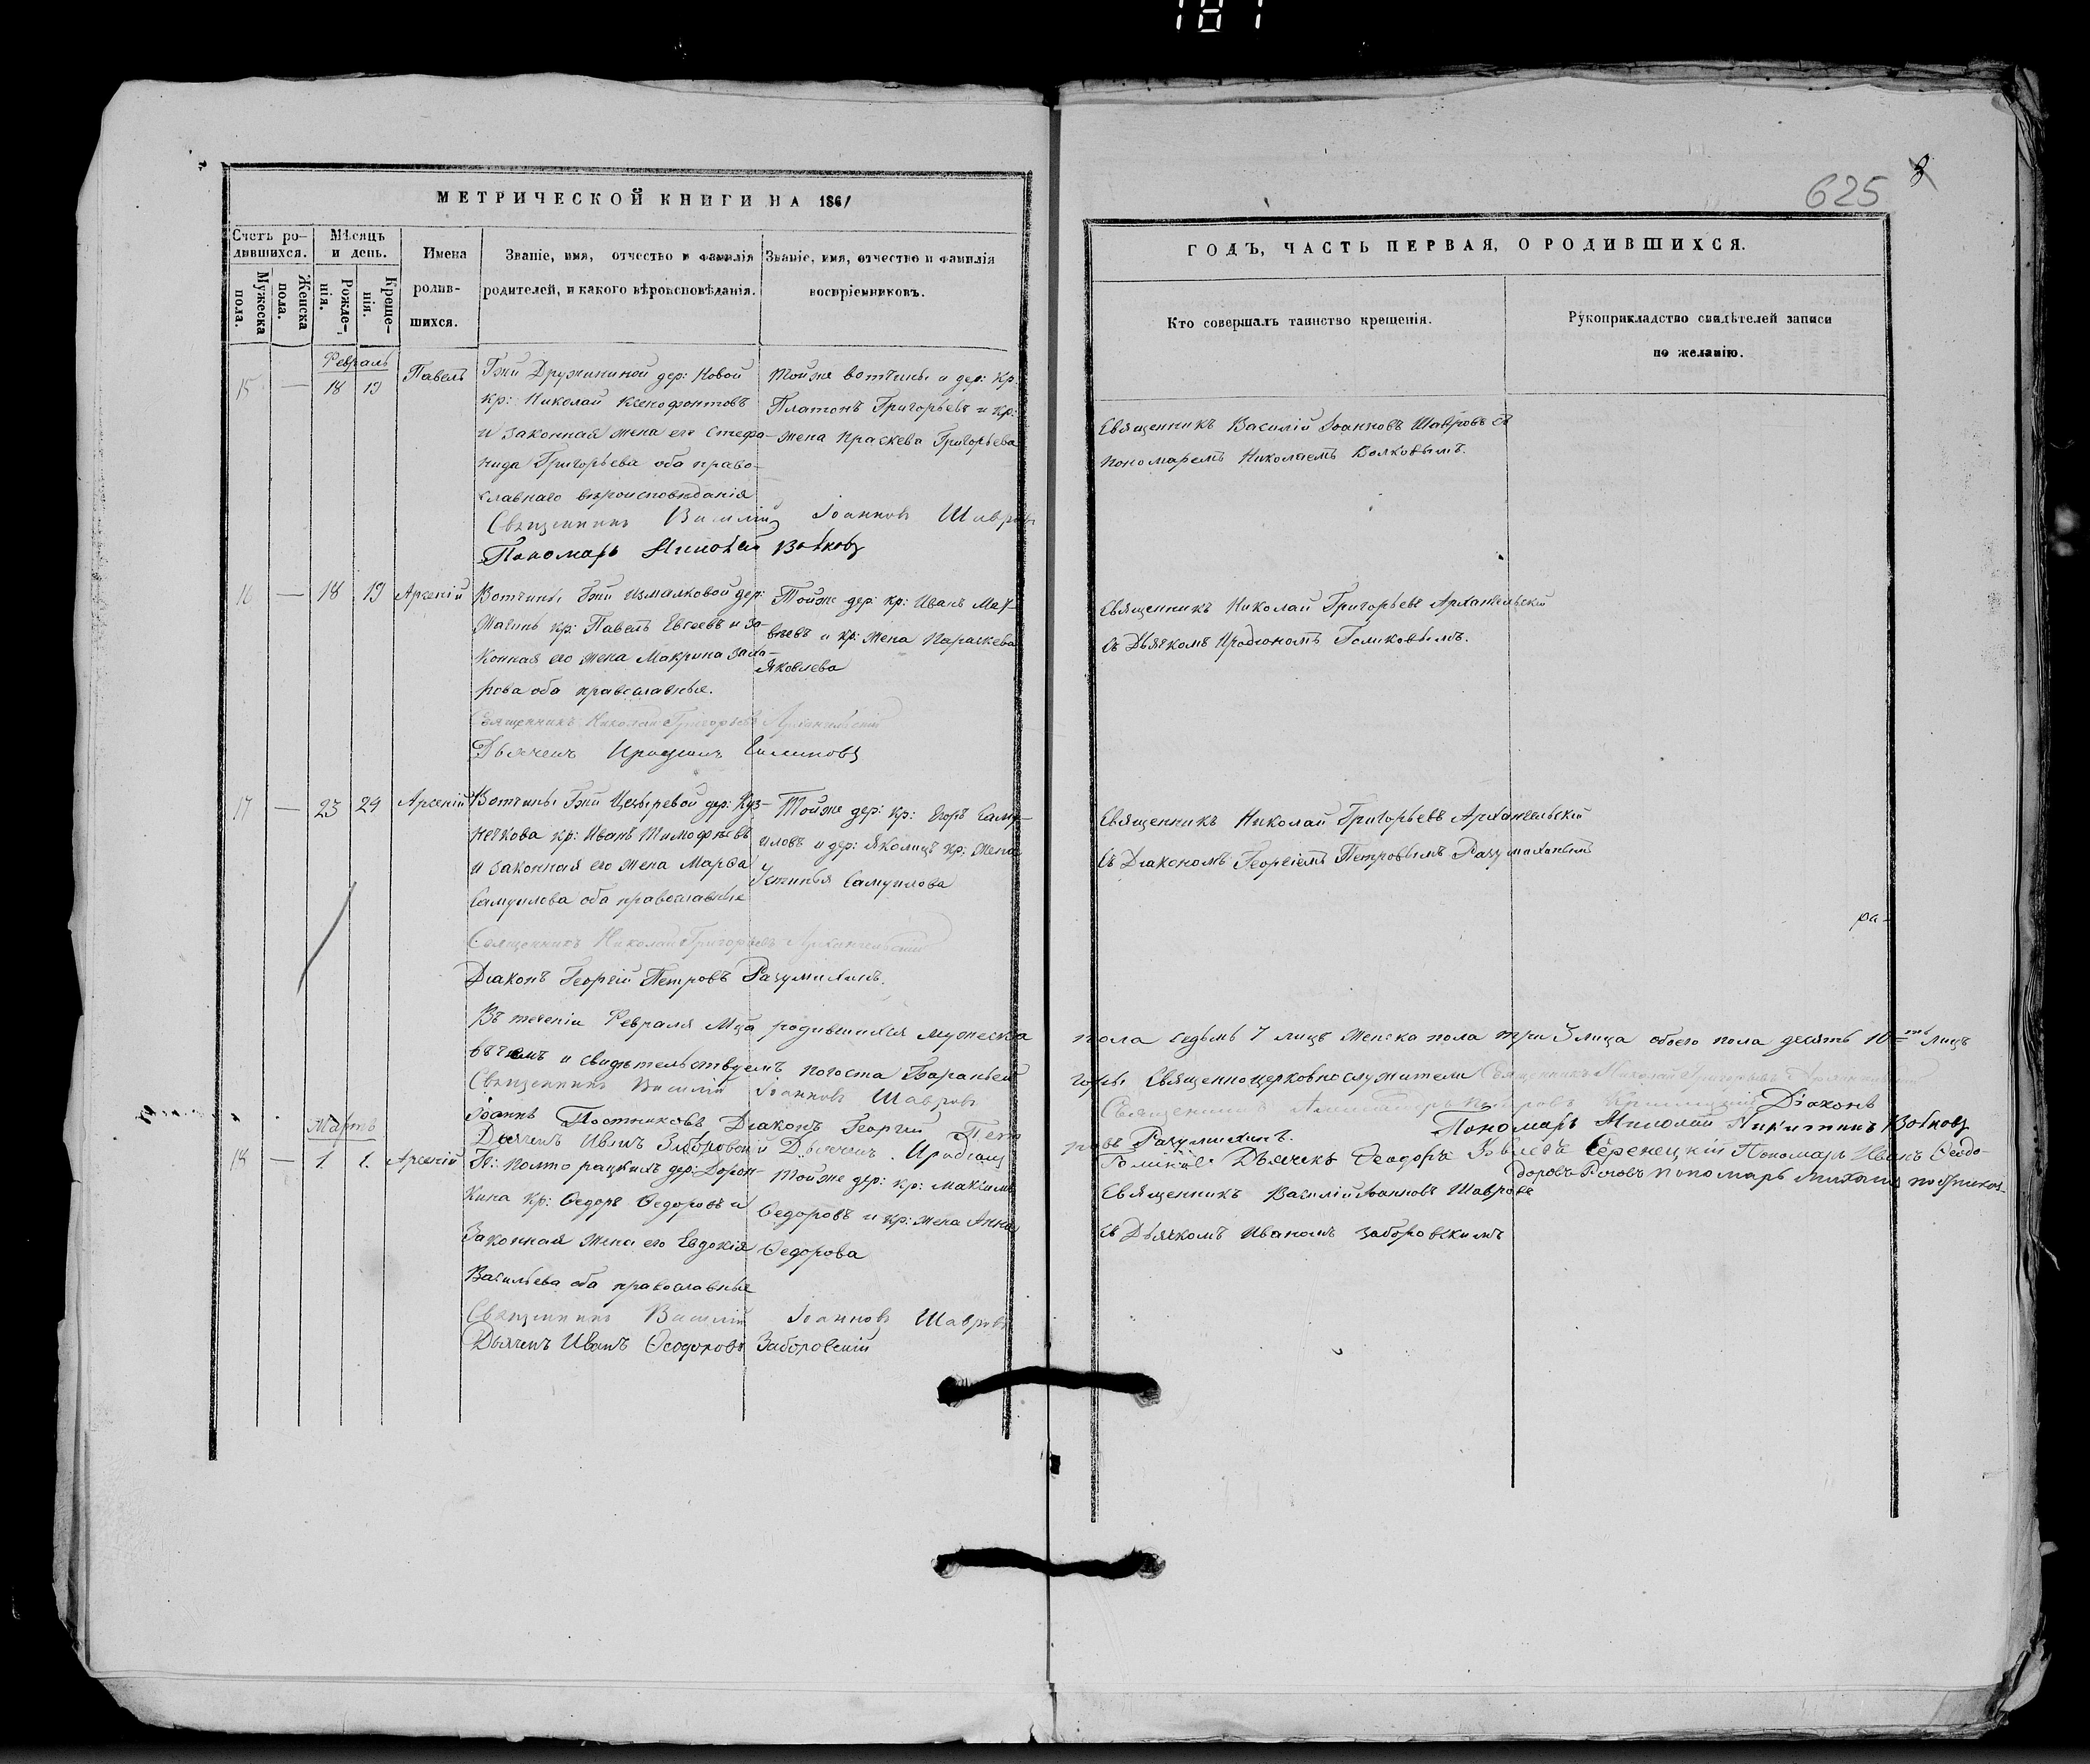 187
МЕТРИЧЕСКОЙ КНИГИ НА 1861
Счетъ ро-
дившихся.
Мѣсяцъ
и день.
Мужеска
пола.
Женска
пола.
Рожде-
нія.
Креще-
нія.
Имена
родив-
шихся.
Званіе, имя, отчество и фамилія
родителей, и какого вѣроисповѣданія.
Званіе, имя, отчество и фамилія
воспріемниковъ.
Февраль
15 — 18 19 Павелъ
Гжи Дружининой дер: Новой
кр: Николай Ксенофонтовъ
и законная жена его Стефа-
нида Григорьева оба право-
славнаго вѣроисповѣданія
Тойже вотчины и дер: кр:
Платонъ Григорьевъ и кр:
жена Праскева Григорьева
Священникъ Василій Іоанновъ Шавровъ
Пономарь Николай Волковъ
16 — 18 19 Арсеній
Вотчины Гжи Измалковой дер:
кр: Павелъ Евсеевъ и за-
конная его жена Макрина Заха-
рова оба православные.
Тойже дер: кр: Иванъ Мат-
вѣевъ и кр: жена Параскева
Яковлева
Священникъ Николай Григорьевъ Архангельскій
Дьячекъ Иродіонъ Голиковъ
17 — 23 24 Арсеній
Вотчины Гжи Цезыревой дер: Куз-
нечкова кр: Иванъ Тимофѣевъ
и законная его жена Марѳа
Самуилова оба православные
Тойже дер: кр: Егоръ Саму-
иловъ и дер: Яколицъ кр: жена
Устинья Самуилова
Священникъ Николай Григорьевъ Архангельскій
Діаконъ Георгій Петровъ Разумихинъ.
Въ теченіи Февраля Мца родившихся мужеска
въ чемъ и свидѣтельствуемъ погоста Бараньей
Священникъ Василій Іоанновъ Шавровъ
Іоаннъ Постниковъ Діаконъ Георгій Пет
Дьячекъ Иванъ Заборовскій Дьячекъ Иродіонъ
Мартъ
18 — 1. 1. Арсеній
дер: Дорон-
кина кр: Ѳедоръ Ѳедоровъ и
Законная жена его Евдокія
Васильева оба православные
Тойже дер: кр: Максимъ
Ѳедоровъ и кр: жена Анна
Ѳедорова
Священникъ Василій Іоанновъ Шавровъ
Дьячекъ Иванъ Ѳеодоровъ Заборовскій
625
8
ГОДЪ, ЧАСТЬ ПЕРВАЯ, О РОДИВШИХСЯ.
Кто совершалъ таинство крещенія.
Рукоприкладство свидѣтелей записи
по желанію.
Священникъ Василій Іоанновъ Шавровъ съ
пономаремъ Николаемъ Волковымъ.
Священникъ Николай Григорьевъ Архангельскій
съ Дьячкомъ Иродіономъ Голиковымъ.
Священникъ Николай Григорьевъ Архангельскій
съ Діакономъ Георгіемъ Петровымъ Разумихинымъ
ра-
пола седьмь 7 лицъ женска пола три 3 лица обоего пола десять 10 ть лицъ
горы Священноцерковнослужители Священникъ Николай Григорьевъ Архангельскій
Священникъ Діаконъ
ровъ Разумихинъ. Пономарь Николай Никитинъ Волковъ
Голиковъ Дьячекъ Ѳеодоръ Серенецкій Пономарь Иванъ Ѳеодо-
доровъ Пономарь Михаилъ
Священникъ Василій Іоанновъ Шавровъ
съ Дьячкомъ Иваномъ Заборовскимъ